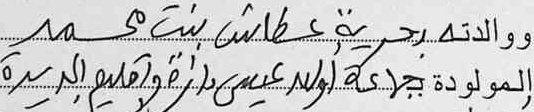 ووالدته بحرية عطاش بنت محمد
المولودة بجماعة اولاد عيسى دائرة واقليم الجديدة